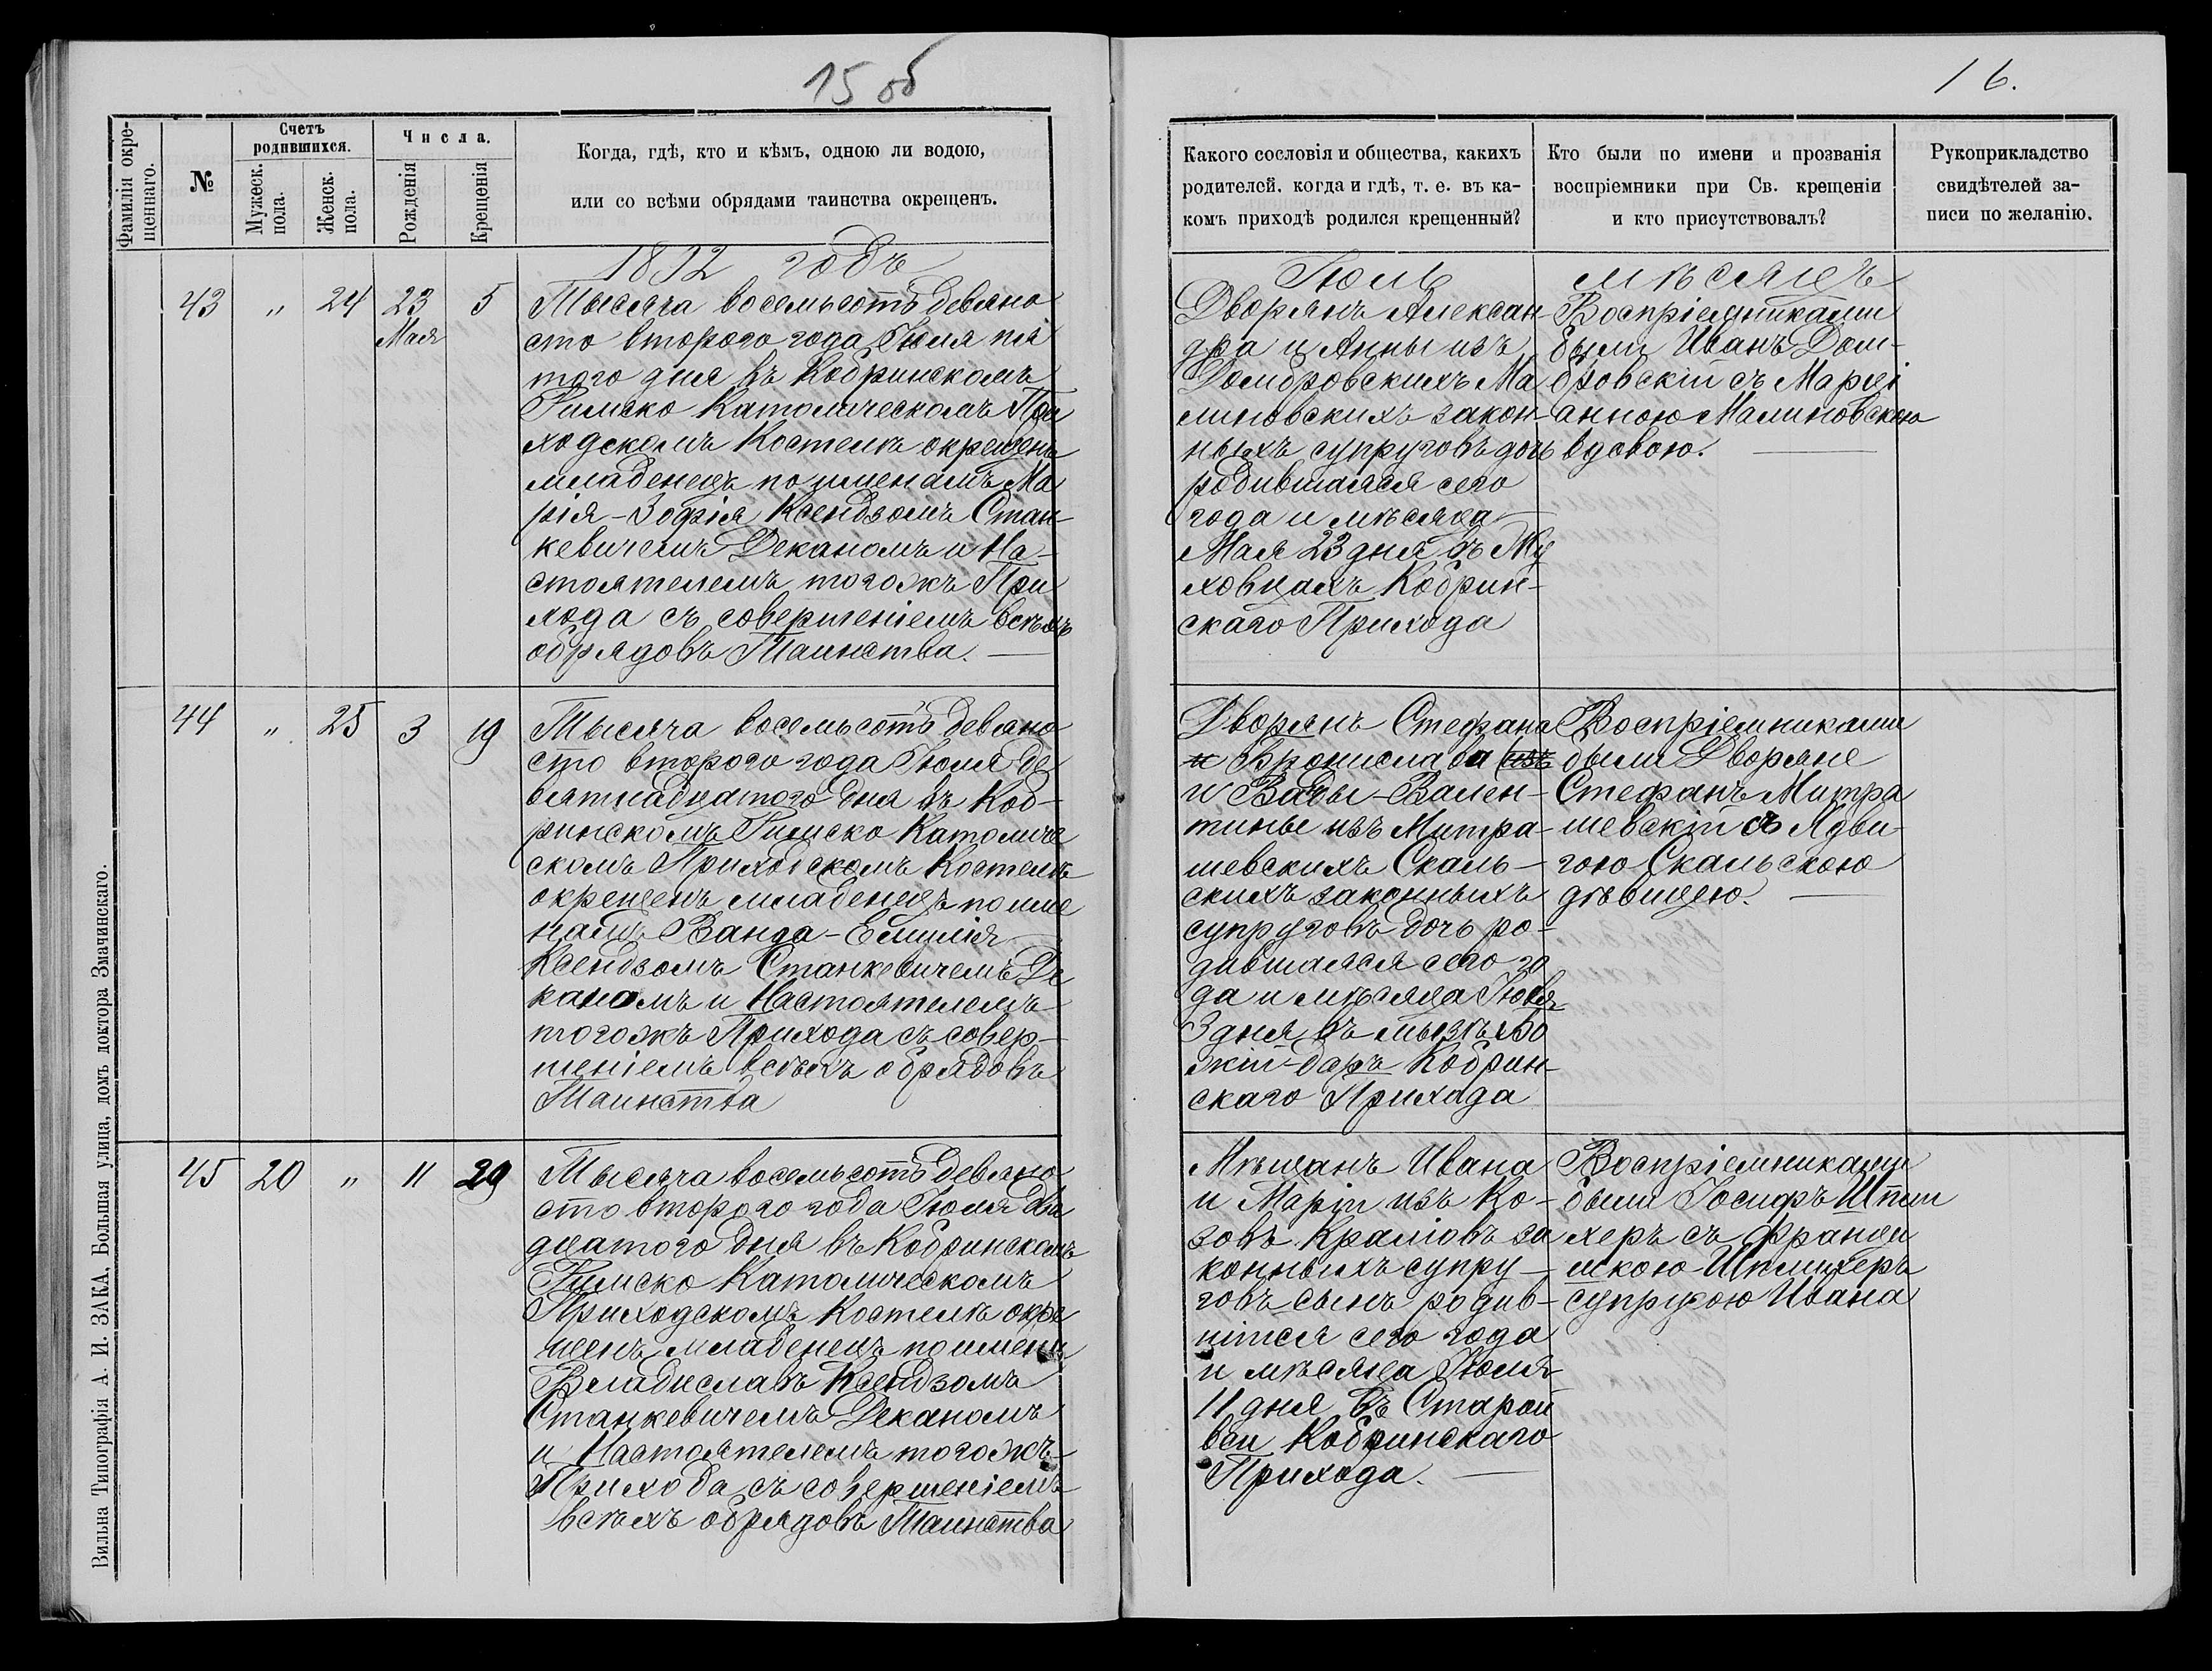 15 об
16.
Фамилія окре-
щеннаго.
№
Счетъ
родившихся.
Мужеск.
пола.
Женск.
пола.
Числа.
Рожденія
Крещенія
Когда, гдѣ, кто и кѣмъ, одною ли водою,
или со всѣми обрядами таинства окрещенъ.
Какого сословія и общества, какихъ
родителей. когда и гдѣ, т. е. въ ка-
комъ приходѣ родился крещенный?
Кто были по имени и прозванія
воспріемники при Св. крещеніи
и кто присутствовалъ?
Рукоприкладство
свидѣтелей за-
писи по желанію.
1892 годъ
Іюль
мѣсяцъ
43 " 24 23 5
Мая
Тысяча восемьсотъ девяно
сто второго года Іюля пя
того дня въ Кобринскомъ
Римско Католическомъ При
ходскомъ Костелѣ окрещенъ
младенецъ по именамъ Ма
рія-Зофія Ксендзомъ Стан-
кевичемъ Деканомъ и На-
стоятелемъ тогожъ При
хода съ совершеніемъ всѣхъ
обрядовъ Таинства.
Дворянъ Алексан-
дра и Анны изъ
Домбровскихъ Ма
линовскихъ закон-
ныхъ супруговъ дочь
родившаяся сего
года и мѣсяца
Мая 23 дня въ Му
ховцахъ Кобрин-
скаго Прихода
Воспріемниками
были Иванъ Дом-
бровскій съ Марці
анною Малиновскою
вдовою.
44 " 25 3 19
Тысяча восемьсотъ девяно
сто второго года Іюля де
вятнадцатого дня въ Коб-
ринскомъ Римско Католиче
скомъ Приходскомъ Костелѣ
окрещенъ младенецъ по име
намъ Ванда-Емилія
Ксендзомъ Станкевичемъ Де
каномъ и Настоятелемъ
тогожъ Прихода съ совер-
шеніемъ всѣхъ обрядовъ
Таинства
Дворянъ Стефана
и Бронислава изъ
и Вады-Вален-
тины изъ Митра-
шевскихъ Скаль-
скихъ законныхъ
супруговъ дочь ро-
дившаяся сего го
да и мѣсяца Іюля
3 дня въ мызѣ Бо
жій-даръ Кобрин-
скаго Прихода
Воспріемниками
были Дворяне
Стефанъ Митра
шевскій съ Ядви-
гою Скальскою
дѣвицею.
45 20 " 11 20
Тысяча восемьсотъ девяно
сто второго года Іюля два
дцатого дня въ Кобринскомъ
Римско Католическомъ
Приходскомъ Костелѣ окре
щенъ младенецъ по имени
Владиславъ Ксендзомъ
Станкевичемъ Деканомъ
и Настоятелемъ тогожъ
Прихода съ совершеніемъ
всѣхъ обрядовъ Таинства
Мѣщанъ Ивана
и Маріи изъ Ко-
зовъ за
конныхъ супру-
говъ сынъ родив-
шійся сего года
и мѣсяца Іюля
11 дня въ Старой
вси Кобринскаго
Прихода.
Воспріемниками
были Іосифъ Шпли
херъ съ Францы
шкою Шплихеръ
супругою Ивана
Вильна Типографія А. И. ЗАКА, Большая улица, домъ доктора Змачинскаго.